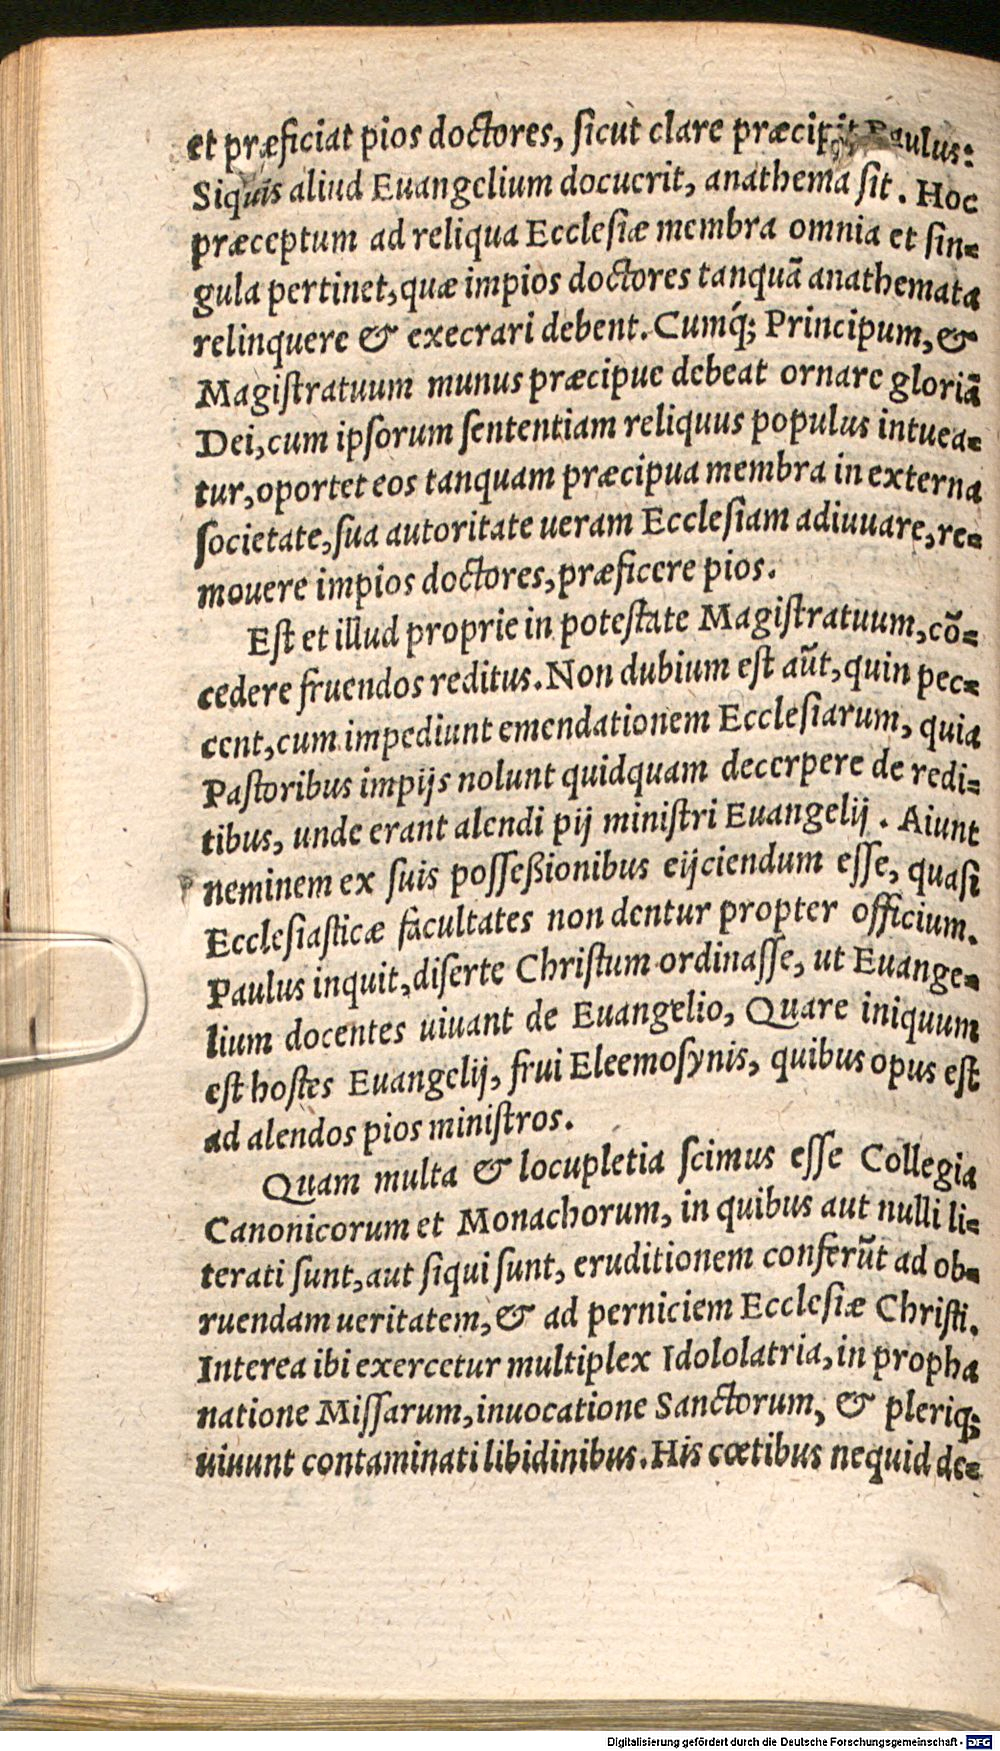 et præficiat pios doctores, ſicut clare præcipit Paulus:
Siquis aliud Euangelium docuerit, anathema ſit. Hoc
præceptum ad reliqua Eccleſiæ membra omnia et ſin=
gula pertinet, quæ impios doctores tanquā anathemata
relinquere & execrari debent. Cumq́; Principum, &
Magiſtratuum munus præcipue debeat ornare gloriā
Dei, cum ipſorum ſententiam reliquus populus intuea=
tur, oportet eos tanquam præcipua membra in externa
ſocietate, ſua autoritate ueram Eccleſiam adiuuare, re=
mouere impios doctores, præficere pios.
Eſt et illud proprie in poteſtate Magiſtratuum, cō=
cedere fruendos reditus. Non dubium eſt aūt, quin pec=
cent, cum impediunt emendationem Eccleſiarum, quia
Paſtoribus impijs nolunt quidquam decerpere de redi=
tibus, unde erant alendi pij miniſtri Euangelij. Aiunt
neminem ex ſuis poſſeßionibus eijciendum eſſe, quaſi
Eccleſiaſticæ facultates non dentur propter officium.
Paulus inquit, diſerte Chriſtum ordinaſſe, ut Euange=
lium docentes uiuant de Euangelio, Quare iniquum
eſt hoſtes Euangelij, frui Eleemoſynis, quibus opus eſt
ad alendos pios miniſtros.
Quam multa & locupletia ſcimus eſſe Collegia
Canonicorum et Monachorum, in quibus aut nulli li=
terati ſunt, aut ſiqui ſunt, eruditionem conferūt ad ob=
ruendam ueritatem, & ad perniciem Eccleſiæ Chriſti.
Interea ibi exercetur multiplex Idololatria, in propha
natione Miſſarum, inuocatione Sanctorum, & pleriq;
uiuunt contaminati libidinibus. His cœtibus nequid de=
Digitalisierung gefördert durch die Deutsche Forschungsgemeinschaft - DFG